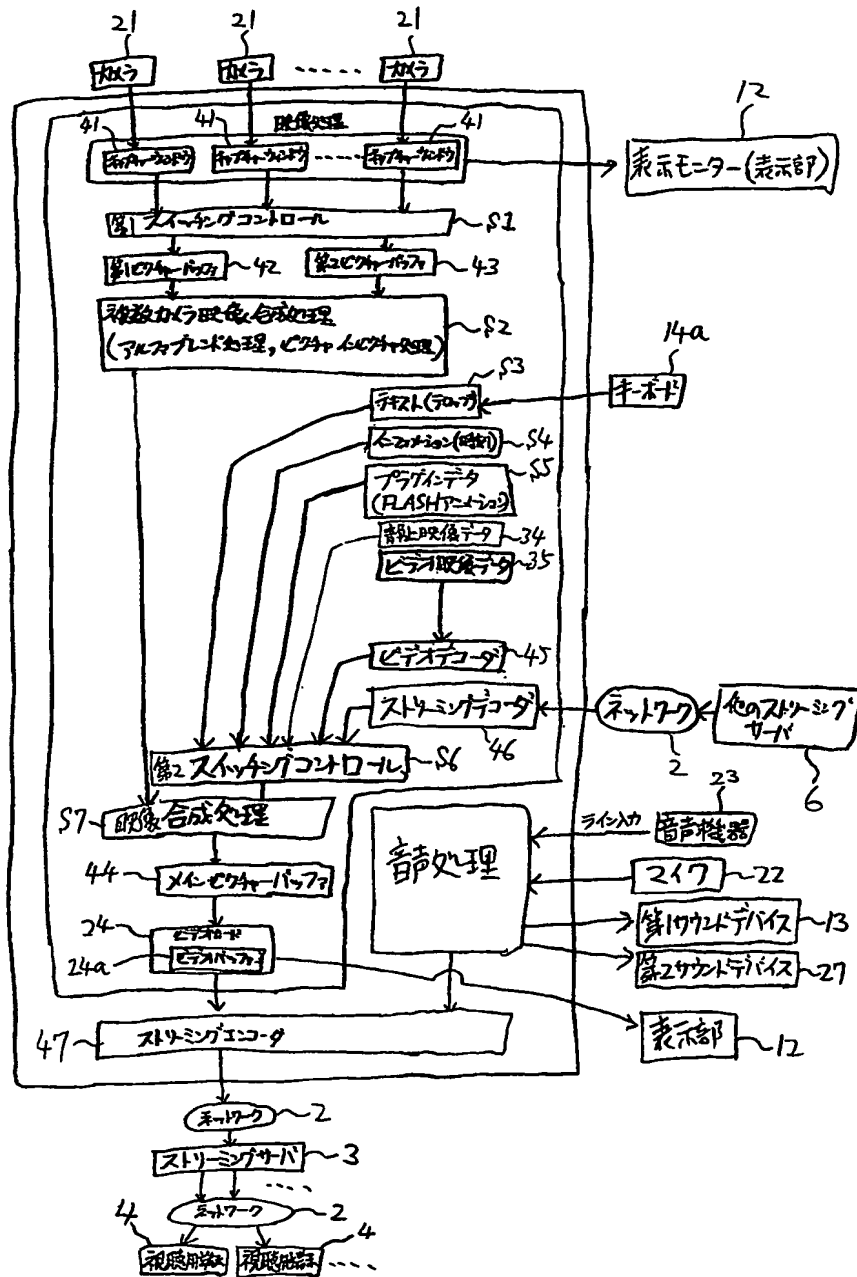 21
21
21
カメラ
カメラ
.....
カメラ
映像処理
12
41
41
41
キャプチャーウィンドウ
キャプチャーウィンドウ
.....
キャプチャーウィンドウ
表示モニター(表示部)
第1スイッチングコントロール
S1
第1ピクチャーバッファ
42
第2ピクチャーバッファ
43
複数カメラ映像合成処理
(アルファブレンド処理,ピクチャインピクチャ処理)
S2
14a
S3
テキスト(テロップ)
キーボード
インフォメーション(時刻)
S4
プラグインデータ
(FLASHアニメーション)
S5
静止映像データ
34
ビデオ映像データ
35
ビデオデコーダ
45
ストリーミングデコーダ
46
ネットワーク
2
他のストリーミング
サーバ
6
第2スイッチングコントロール
S6
S7
映像合成処理
音声処理
ライン入力
23
音声機器
44
メインピクチャーバッファ
マイク
22
24
ビデオカード
24a
ビデオバッファ
第1サウンドデバイス
13
第2サウンドデバイス
27
47
ストリーミングエンコーダ
表示部
12
ネットワーク
2
ストリーミングサーバ
3
.....
ネットワーク
2
4
4
視聴用端末
視聴用端末
.....